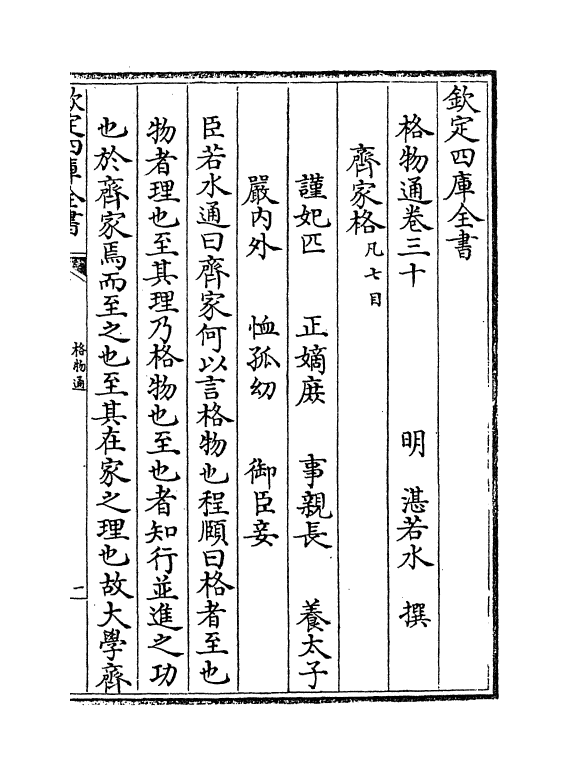 欽定四庫全書
格物通卷三十
明 湛若水 撰
齊家格凡七目
謹妃匹 正嫡庶 事親長 養太子
嚴内外 恤孤幼 御臣妾
臣若水通曰齊家何以言格物也程頤曰格者至也
物者理也至其理乃格物也至也者知行並進之功
也於齊家焉而至之也至其在家之理也故大學齊
欽定四庫全書
格物通
一